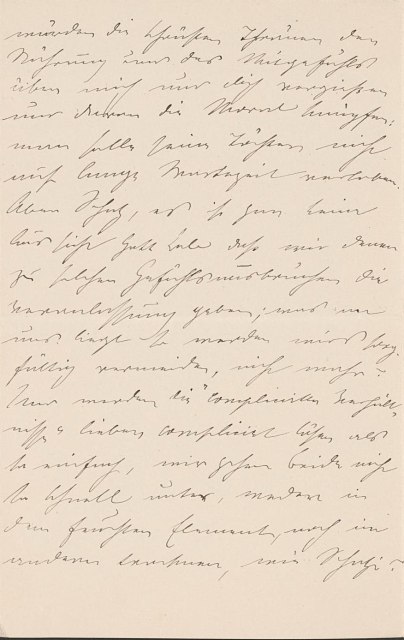 würden die schönsten Thränen der
Rührung und des Mitgefühls
über mich und dich vergießen
und daran die Moral knüpfen:
man solle seine Töchter nicht
auf lange Wartezeit verloben.
Aber Schatz, es ist gar keine
Aussicht Gott Lob daß wir denen
zu solchen Gefühlsausbrüchen die
Veranlassung geben; was an
uns liegt so werden wir's sorg-
fältig vermeiden, nicht wahr?
Wir werden die "complicirten Verhält-
nisse" lieber complicirt lösen als
so einfach, wir gehen beide nicht
so schnell unter, weder in
dem feuchten Element, noch in
anderen, wie Schatzi?